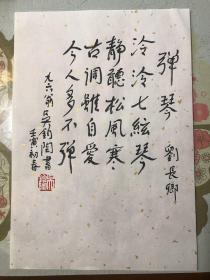 弹琴
劉長卿
泠泠七絃琴
静聽松風寒
古調雖自愛
今人多不弹
九六翁吳鈞陶書
壬寅初春